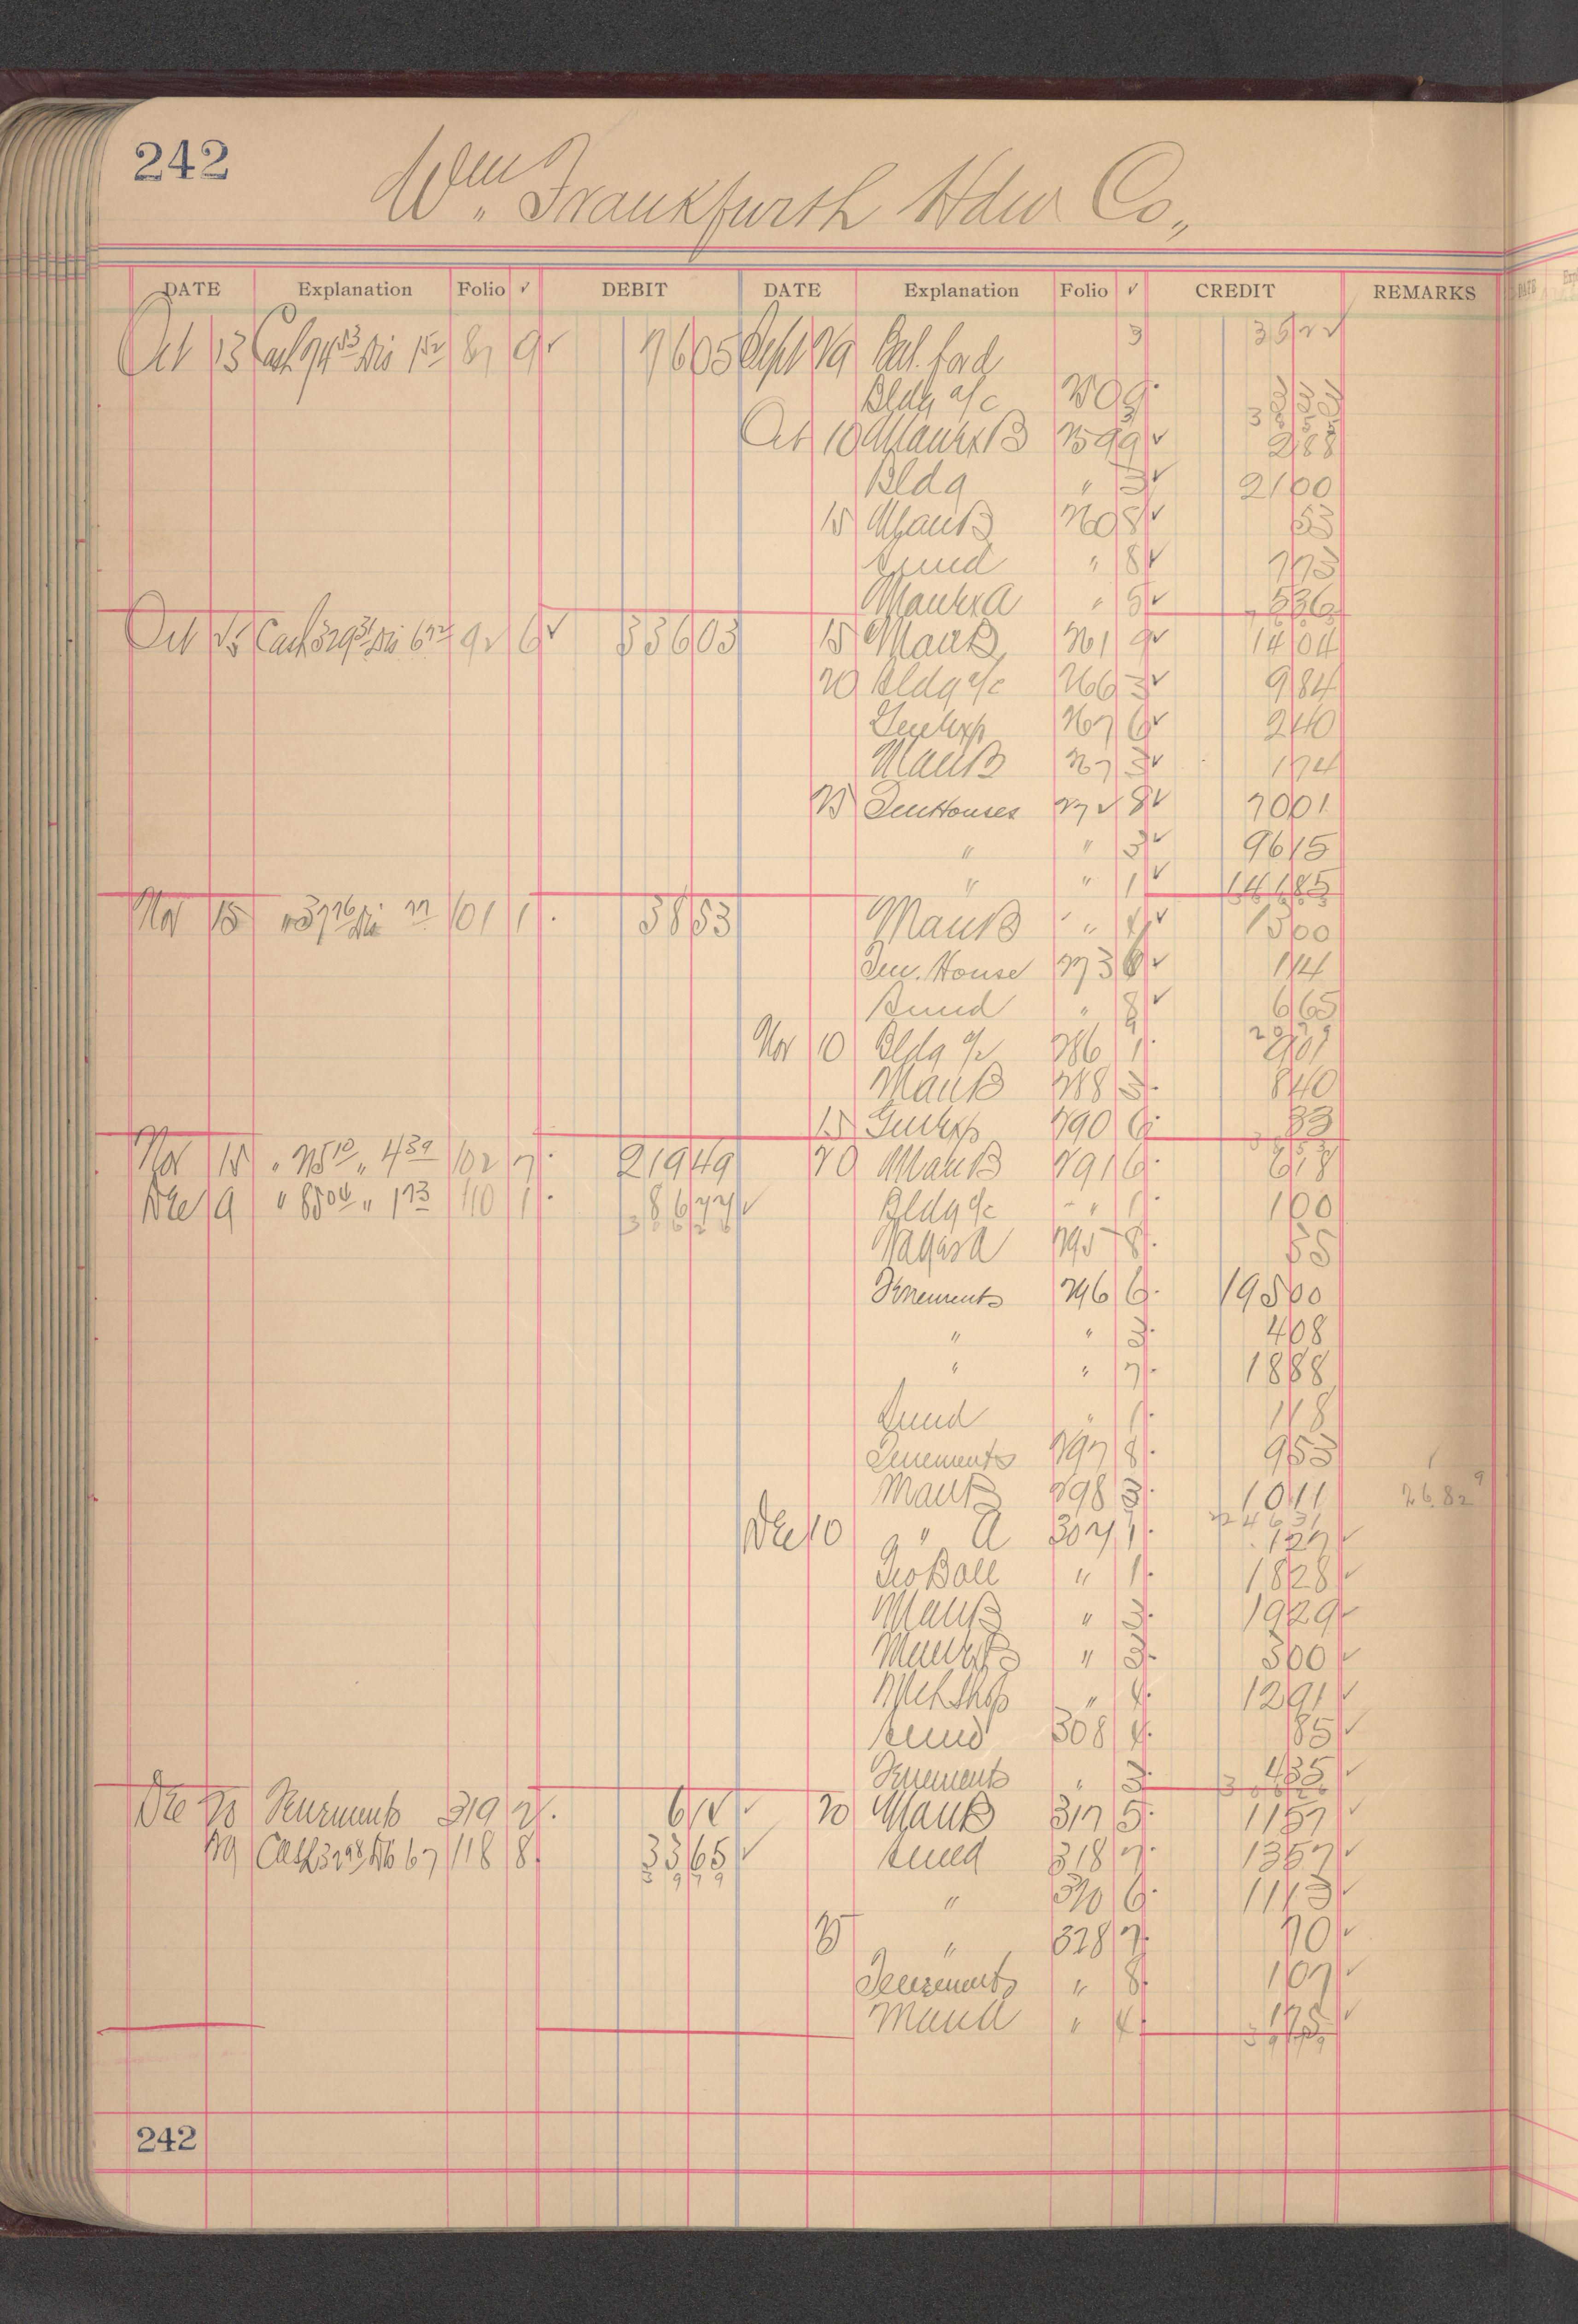 242
Wm. Frankfurth Hdw Co.,
DATE Explanation Folio ✓ DEBIT DATE Explanation Folio ✓ CREDIT REMARKS
Oct 13 Cash 74 53 Dis 1 52 87 9 ✓ 7605 Sept 29 Bal. ford 3 3522
Bldg a/c 250 9
Oct 10 ManExB 259 9 ✓ 288
Bldg " 3 ✓ 2100
15 ManB 260 8 ✓ 53
Sund " 8 ✓ 773
ManExA " 5 ✓ 536
Oct 25 Cash 329 31 Dis 6 72 92 6 ✓ 33603 15 ManB 261 9 ✓ 1404
20 Bldg a/c 266 3 ✓ 984
GenExp 267 6 ✓ 240
ManB 267 3 ✓ 174
25 TenHouses 272 8 ✓ 7001
" " 3 ✓ 9615
" " 1 ✓ 14685
Nov 15 " 37 76 Dis 77 101 1 3853 ManB " 4 ✓ 1300
Ten. House 273 6 ✓ 114
Sund " 8 ✓ 665
Nov 10 Bldg a/c 286 1
ManB 288 3 840
15 GenExp 290 6 33
Nov 18 " 215 10 " 4 39 102 7 21949 20 ManB 291 6 618
Dec 9 " 85 04 " 1 73 110 1 8677 ✓ Bldg a/c " 1 100
295 8 55
Tenements 296 6 19500
" " 3 408
" " 7 1888
Sund " 1 118
Tenements 297 8 953
ManB 298 3 1011 26.82
Dec 10 " A 307 1 127 ✓
Geo Ball " 1 1828 ✓
ManB " 3 1929 ✓
ManExB " 3 300 ✓
Mch Shop " 4 1291 ✓
Sund 308 4 85 ✓
Tenements " 3 435 ✓
Dec 20 Tenements 319 2 612 ✓ 20 ManB 317 5 1157 ✓
29 Cash 32 98 Dis 67 118 8 3365 ✓ Sund 318 7 1357 ✓
" 320 6 1113 ✓
25 " 328 7 70 ✓
Tenements " 8 107 ✓
ManA " 4 175 ✓
242